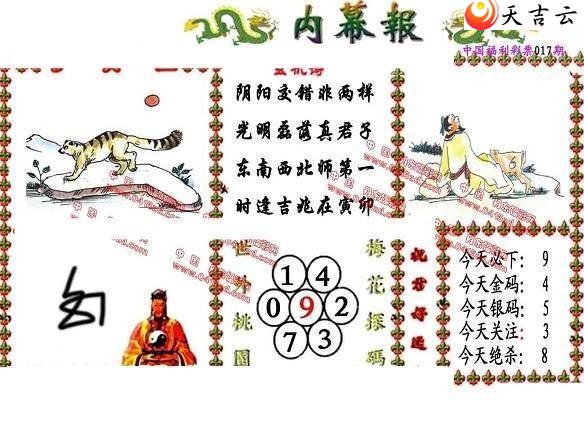 内幕報
天吉云
中国福利彩票017期
阴阳交错非两样
光明磊落真君子
东南西北师第一
时逢吉兆在寅卯
6
世外桃園
1 4
0 9 2
7 3
梅花探碼
祝君好运
今天必下：9
今天金码：4
今天银码：5
今天关注：3
今天绝杀：8